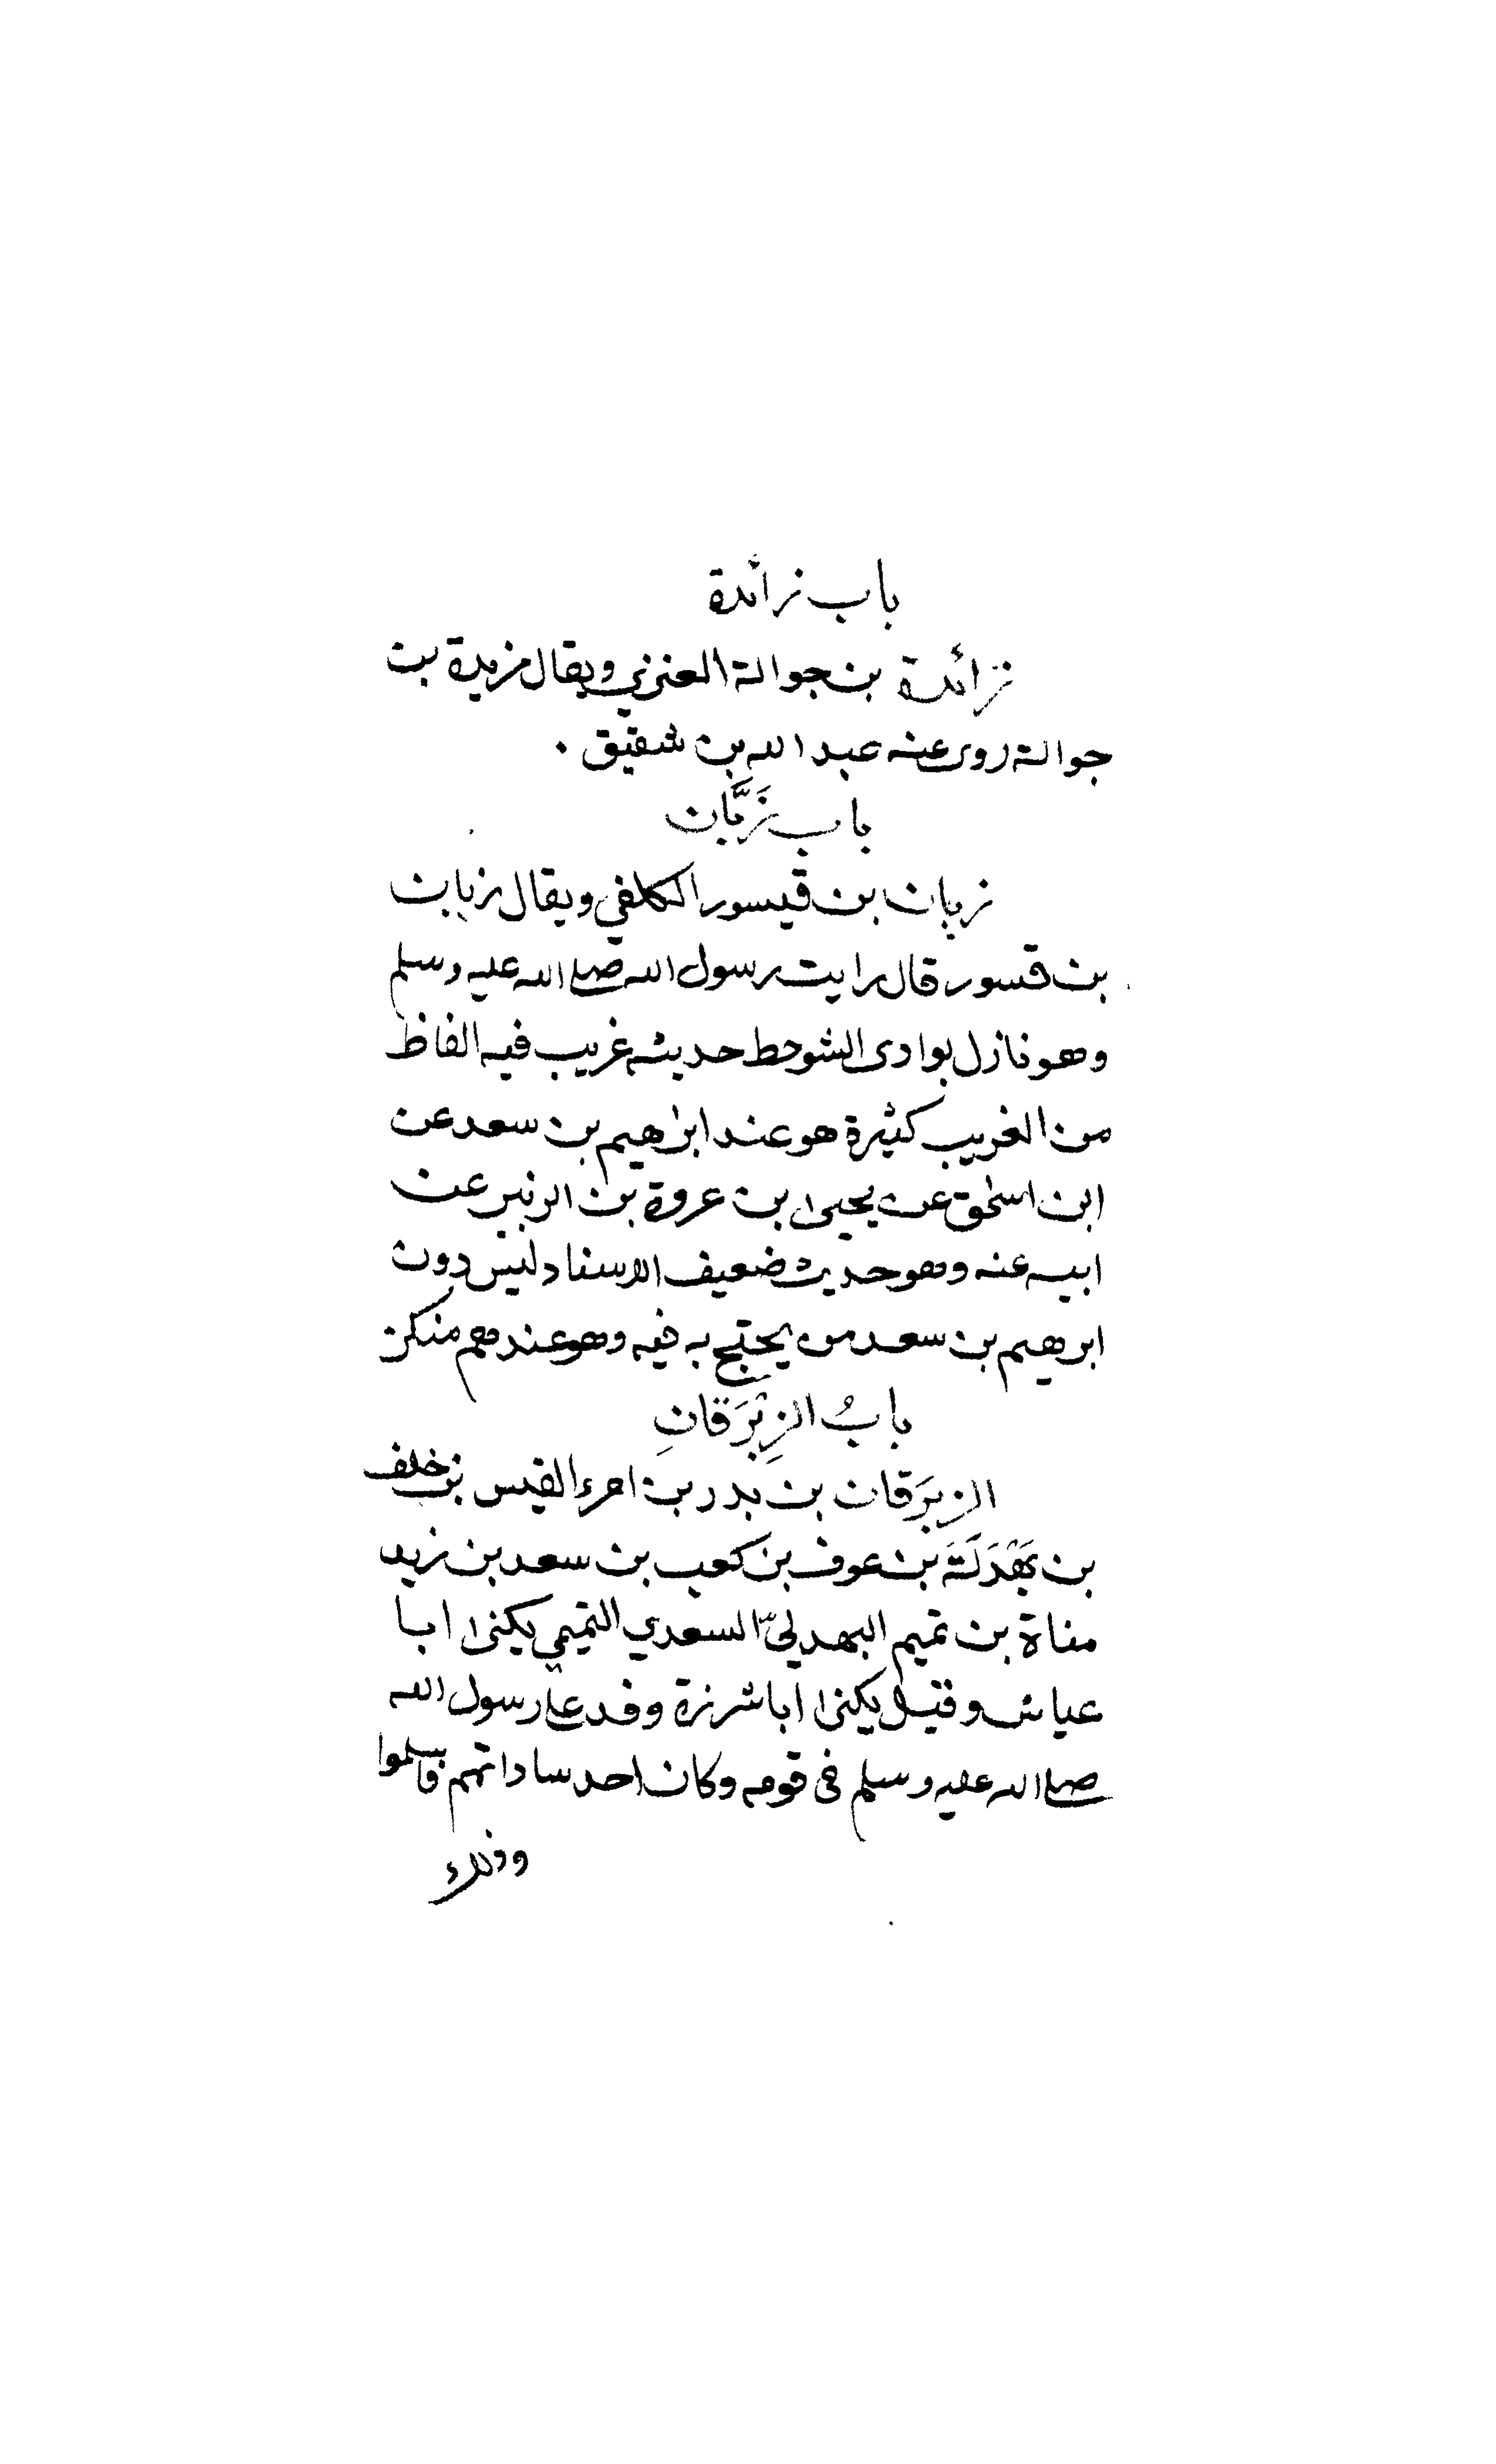 باب زائدة
زائدة بن جوالة العنزي ويقال مزيدة بن
جوالة روى عنه عبد الله بن شقيق .
باب زَبَّان
زبان بن قيسور الكلفي ويقال زبان
بن قسور قال رايت رسول الله صلى الله عليه وسلم
وهو نازل بوادى الشوحط حديثه غريب فيه الفاظ
من الغريب كثيرة هو عند ابرهيم بن سعد عن
ابن اسحق عن يحيى بن عروة بن الزبير عن
ابيه عنه وهو حديث ضعيف الاسناد ليس دون
ابرهيم بن سعد من يحتج به فيه وهو عندهم منكر
بابُ الزِبْرَقانِ
الزبرَقان بن بدر بن امرء القيس بن خلف
بن بَهْدَلَةَ بن عوف بن كعب بن سعد بن زيد
مناة بن تميم البهدليّ السعدي التميمي يكنى ابا
عياش وقيل يكنى ابا شزرة وفد على رسول الله
صلى الله عليه وسلم فى قومه وكان احد ساداتهم فاسلموا
وذلك